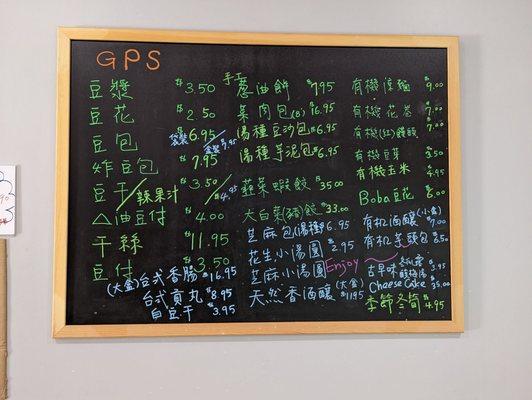 GPS
豆漿 $3.50
豆花 $2.50
豆包 袋裝 $6.95
炸豆包 $7.95
豆干 / 辣果汁 $3.50 / $4.95
△油豆付 $4.00
干絲 $11.95
豆付 $3.50
(大盒)台式香腸 $16.95
台式貢丸 $8.95
白豆干 3.95
手工蔥油餅 $7.95
菜肉包(8) $16.95
湯種豆沙包 $6.95
湯種芋泥包 $6.95
韮菜蝦餃 $35.00
大白菜(豬)餃 $33.00
芝麻包(湯種) $6.95
花生小湯圓 $2.95
芝麻小湯圓 Enjoy
天然香酒釀 (大盒) $11.95
有機涼麵 $9.00
有機花卷 $7.00
有機(紅)饅頭 $7.00
有機豆芽 $3.50
有機玉米 $4.95
Boba豆花 $6.00
有机酒釀(小盒) $7.00
有机芋頭包 $8.50
古早味 酸梅湯 $3.95
Cheese Cake 35.00
季節冬筍 $4.95